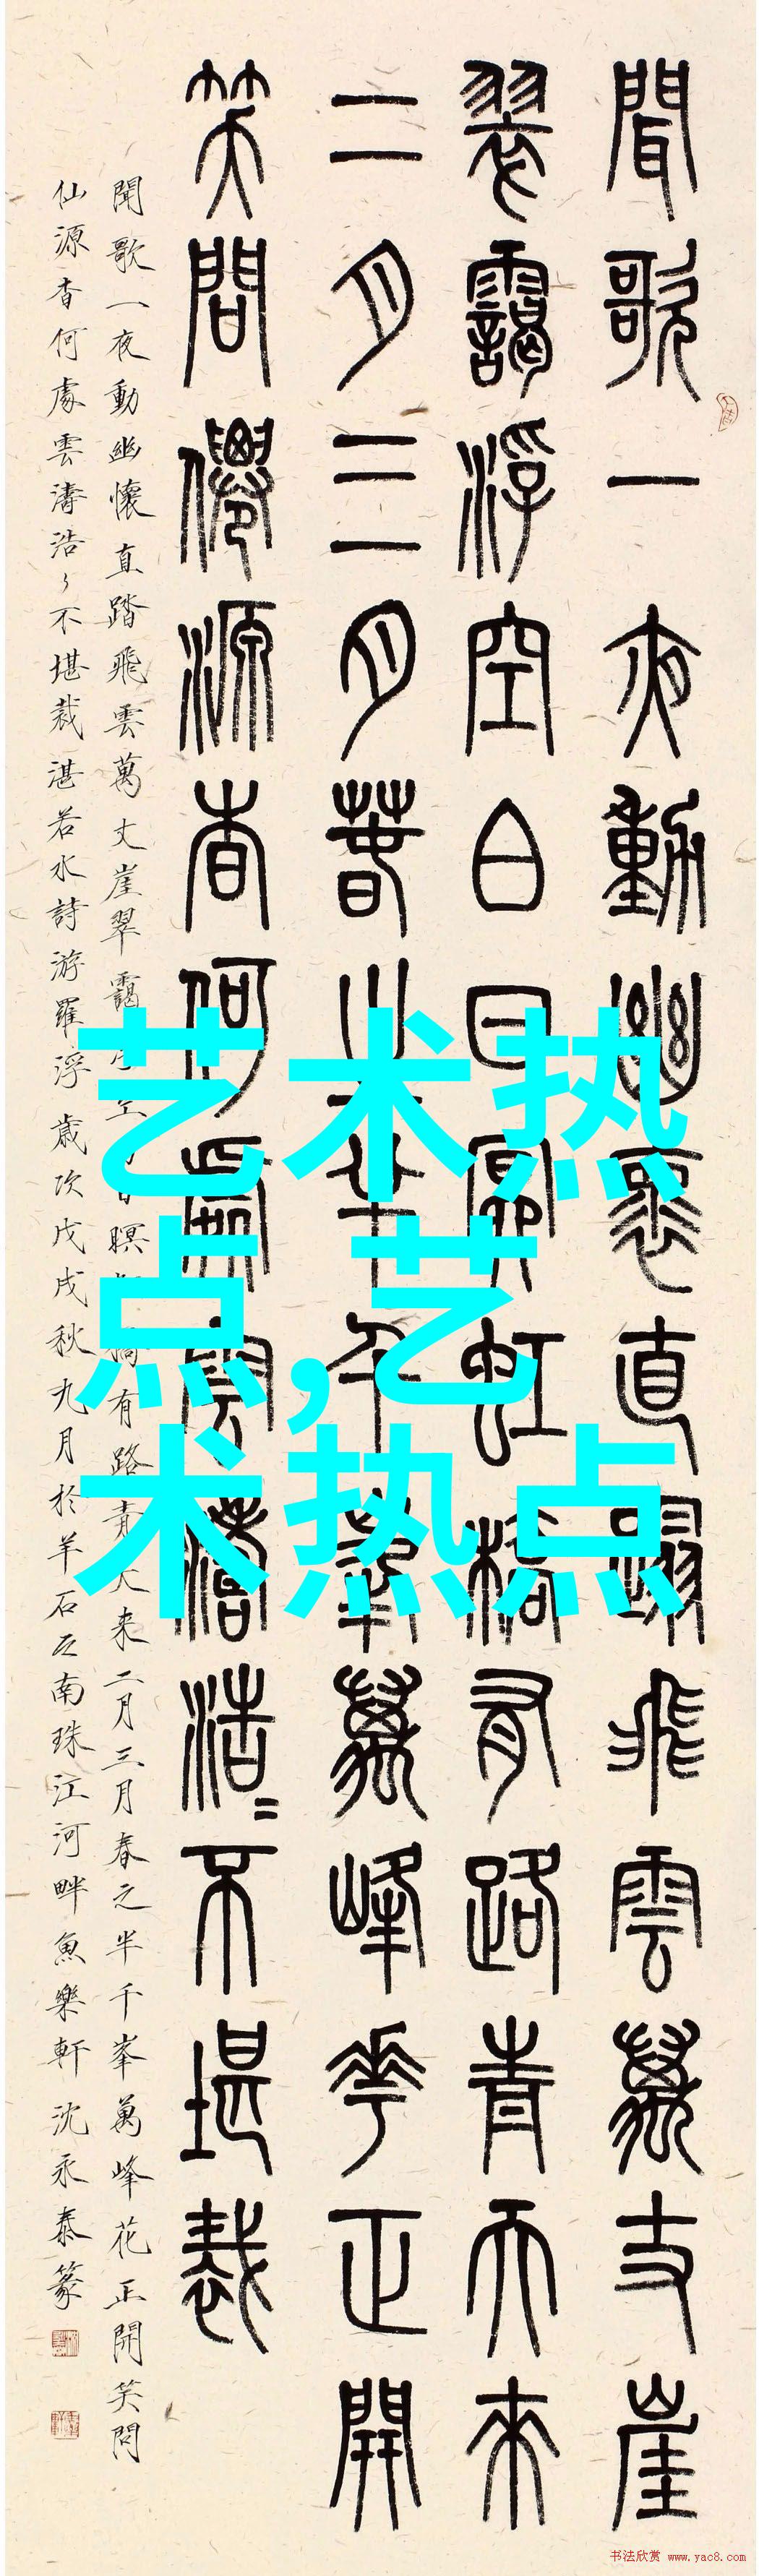 聞歌一夜動幽褱直蹋飛雲萬丈崖
翠靄浮空白日冥虹橋有路青天來
二月三月春之半千峯萬峰花正開
笑問僊源杳何處雲濤浩〻不堪裁
聞歌一夜動幽懷直踏飛雲萬丈崖翠靄浮空白日瞑虹橋有路青天來二月三月春之半千峯萬峰花正開笑問
仙源杳何處雲濤浩々不堪裁湛若水詩游羅浮歲次戊戌秋九月於羊石之南珠江河畔魚樂軒沈永泰篆
艺术热
点,艺
术热点
书法欣赏 www.yac8.com